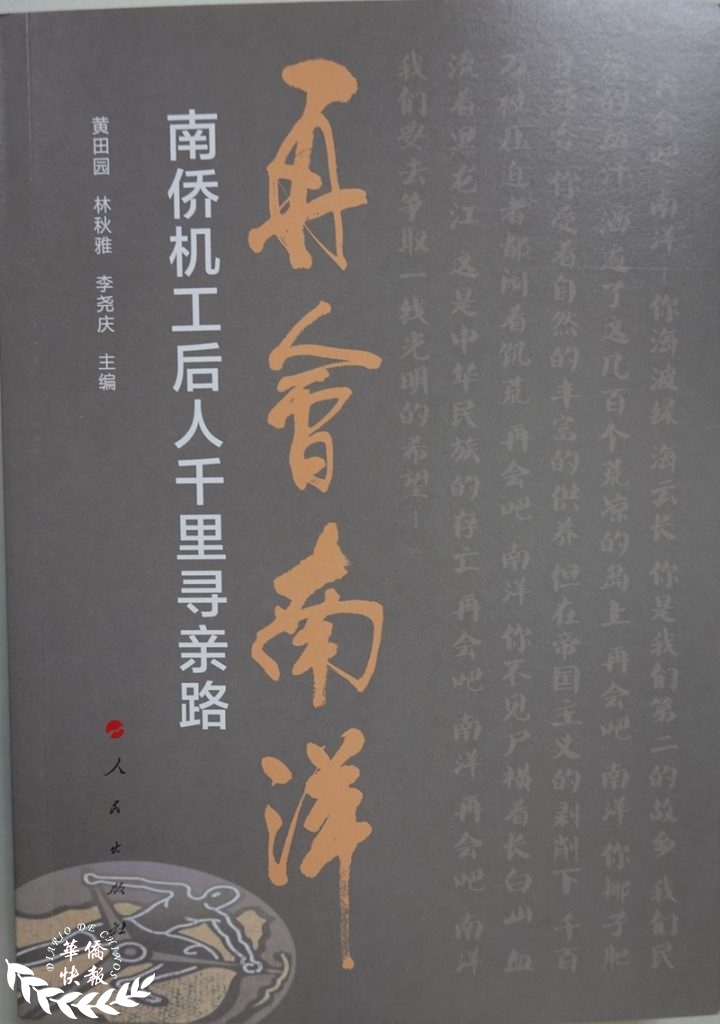 再会吧 南洋！你海波绿 海云长 你是我们第二的故乡 我们民
族的血汗 洒遍了这几百个荒凉的岛上 再会吧 南洋 你椰子肥
豆蔻香 你受着自然的丰富的供养 但在帝国主义的剥削下 千百
万被压迫者都闹着饥荒 再会吧 南洋 你不见尸横着长白山 血
流着黑龙江 这是中华民族的存亡 再会吧 南洋 再会吧 南洋
我们要去争取一线光明的希望！
再會南洋
南侨机工后人千里寻亲路
黄田园 林秋雅 李尧庆 主编
人民出版社
DIARIO DE CHINOS
華僑
快報